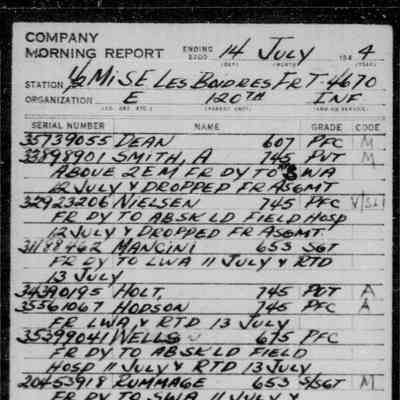 COMPANY
MORNING REPORT ENDING 2400 14 JULY 194 4
(DAY) (MONTH) (YEAR)
STATION 1/2 MI SE LES BOIDRES FR T-4670
ORGANIZATION E 120TH INF
SERIAL NUMBER NAME GRADE CODE
35739055 DEAN 607 PFC M
33898901 SMITH, A 745 PVT M
ABOVE 2 EM FR DY TO SWA
12 JULY & DROPPED FR ASGMT
32923206 NIELSEN 745 PFC
FR DY TO ABSK LD FIELD HOSP
12 JULY & DROPPED FR ASGMT
31188462 MANCINI 653 SGT
FR DY TO LWA 11 JULY & RTD
13 JULY
34390195 HOLT, 745 PVT A
35561067 HODSON 745 PFC A
FR LWA & RTD 13 JULY
35399041 WELLS 675 PFC
FR DY TO ABSK LD FIELD
HOSP 11 JULY & RTD 13 JULY
20453918 RUMMAGE 653 S/SGT M
FR DY TO SWA 11 JULY &